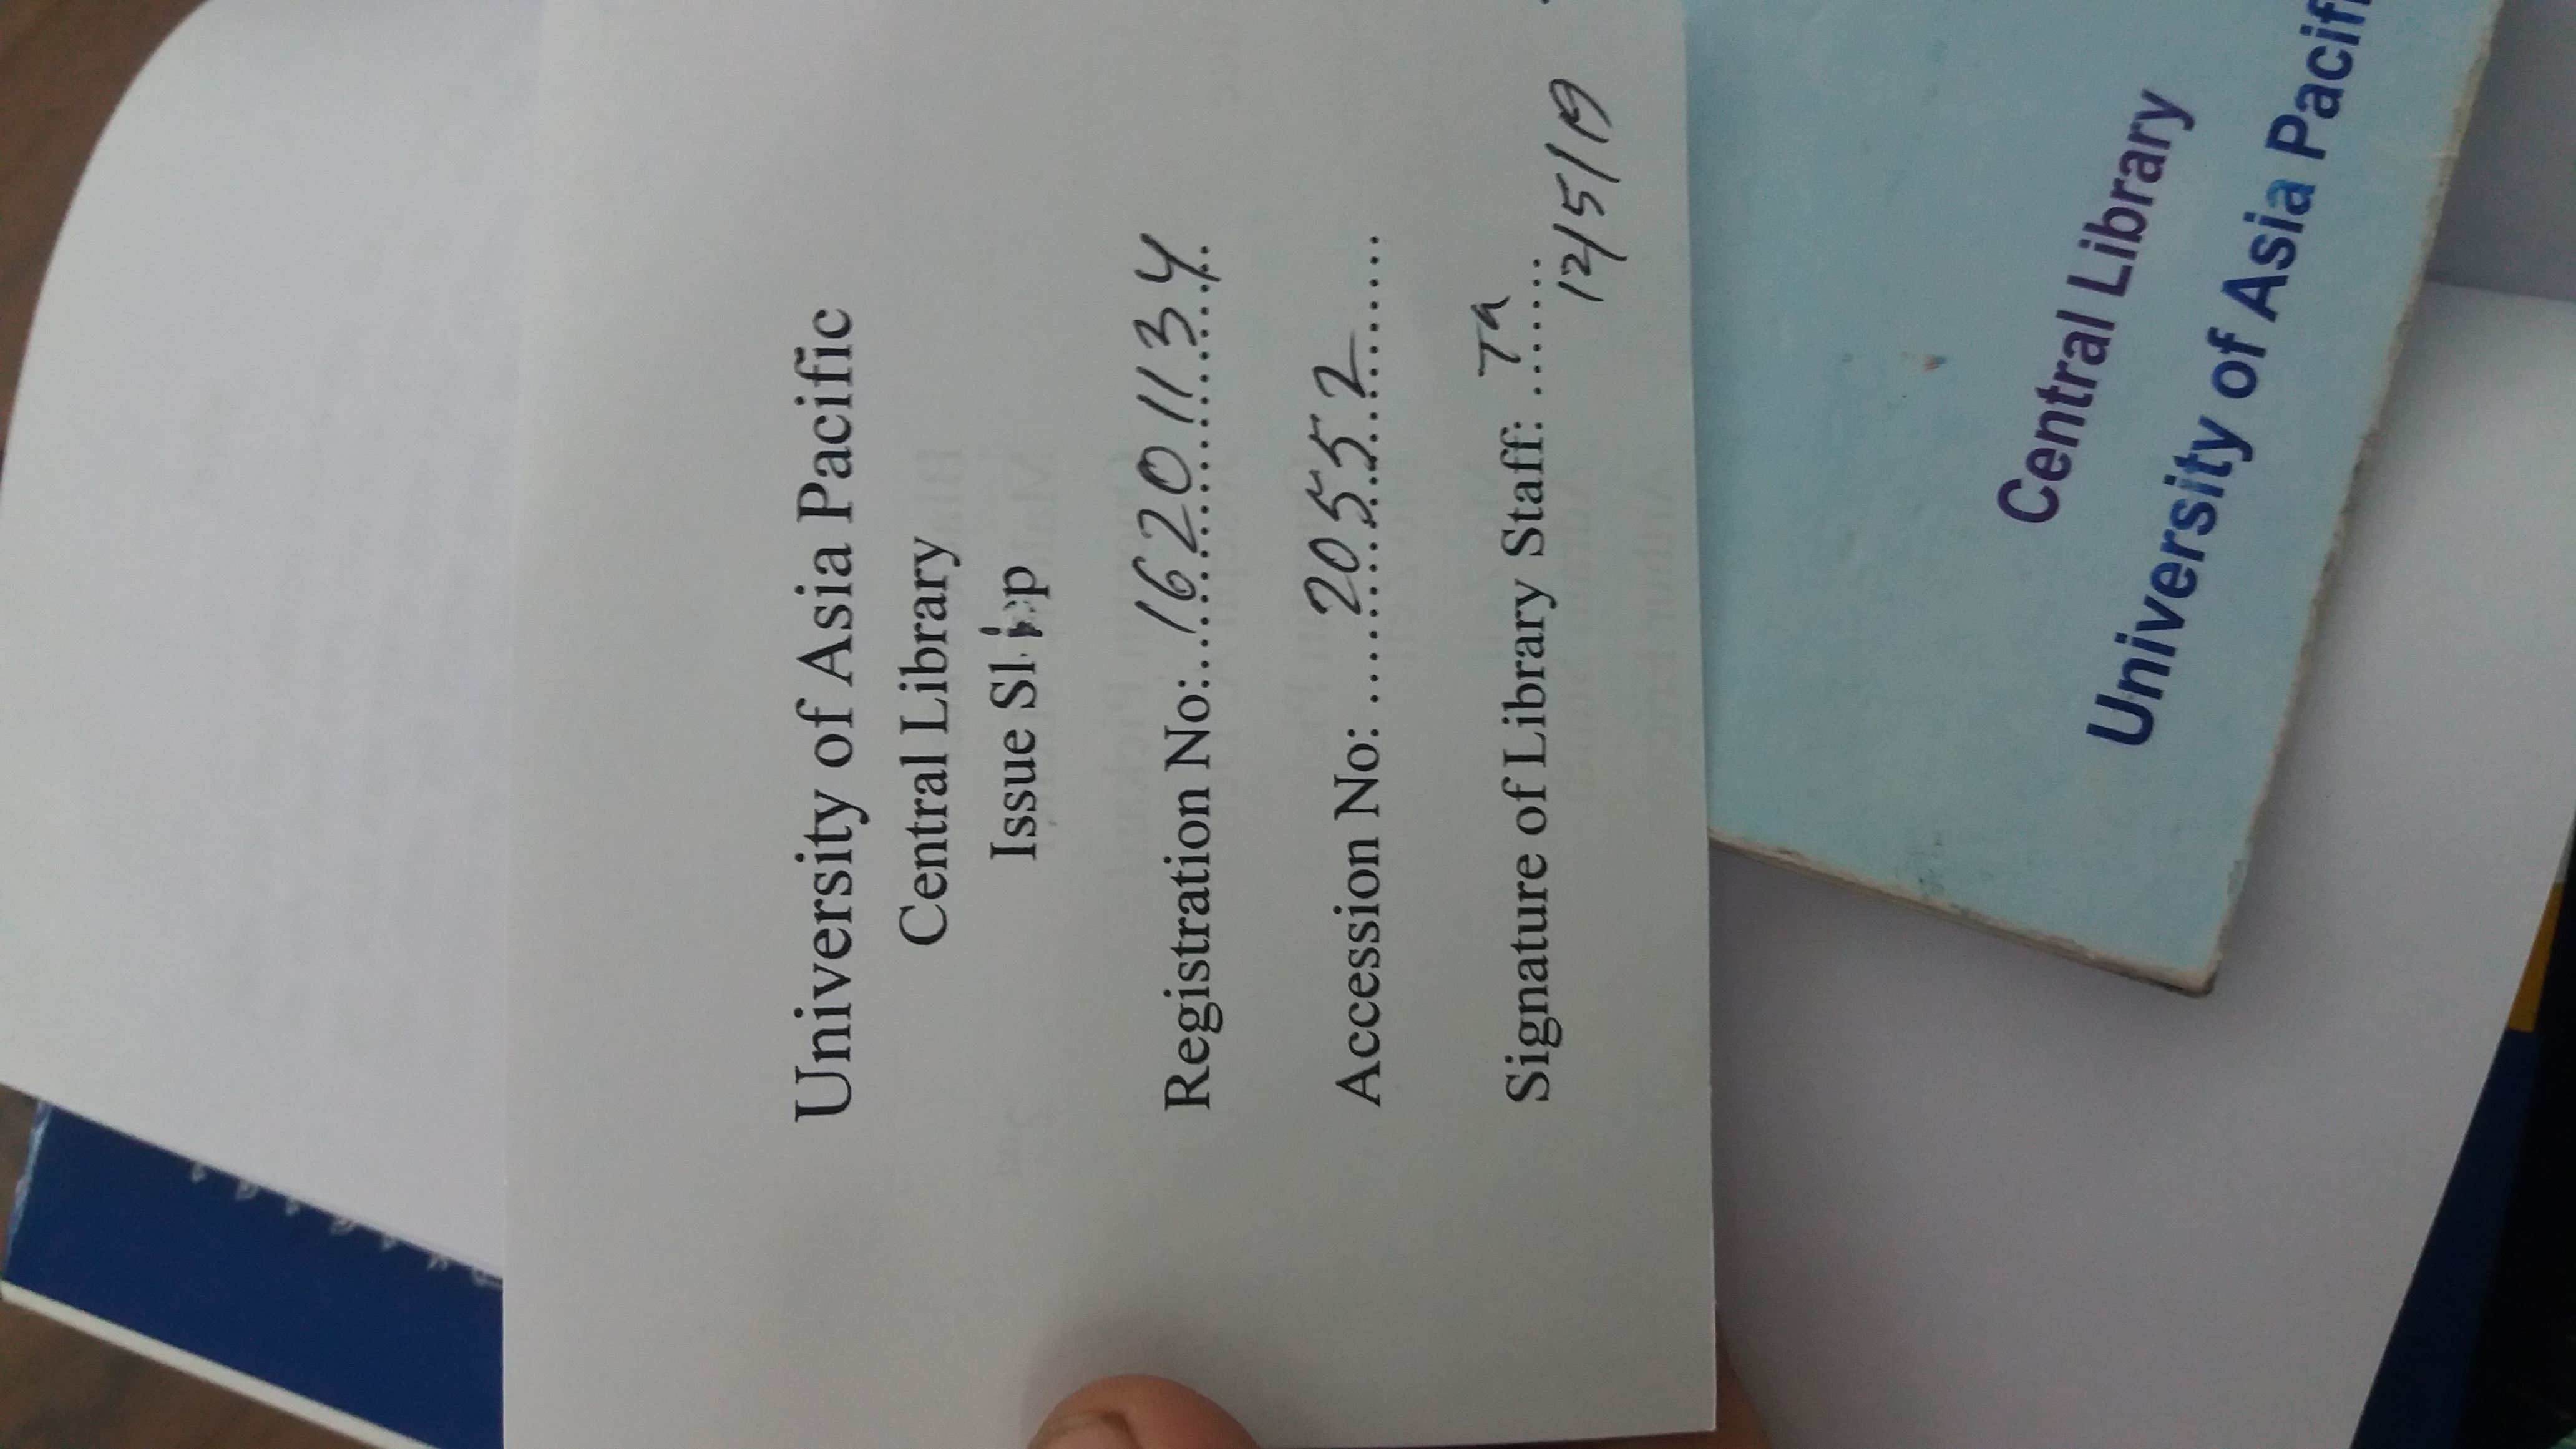 University of Asia Pacific
Central Library
Issue Slip
Registration No: 16201134
Accession No: 20552
Signature of Library Staff: Ta
12/5/19
Central Library
University of Asia Pacifi